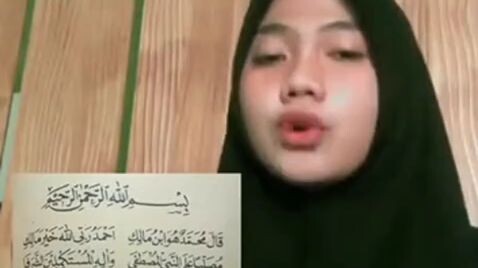 بِسْمِ اللهِ الرَّحْمٰنِ الرَّحِيْمِ
قَالَ مُحَمَّدٌ هُوَ ابْنُ مَالِكِ أَحْمَدُ رَبِّي اللهَ خَيْرَ مَالِكِ
مُصَلِّيًا عَلَى النَّبِيِّ الْمُصْطَفَى وَآلِهِ الْمُسْتَكْمِلِيْنَ الشَّرَفَا